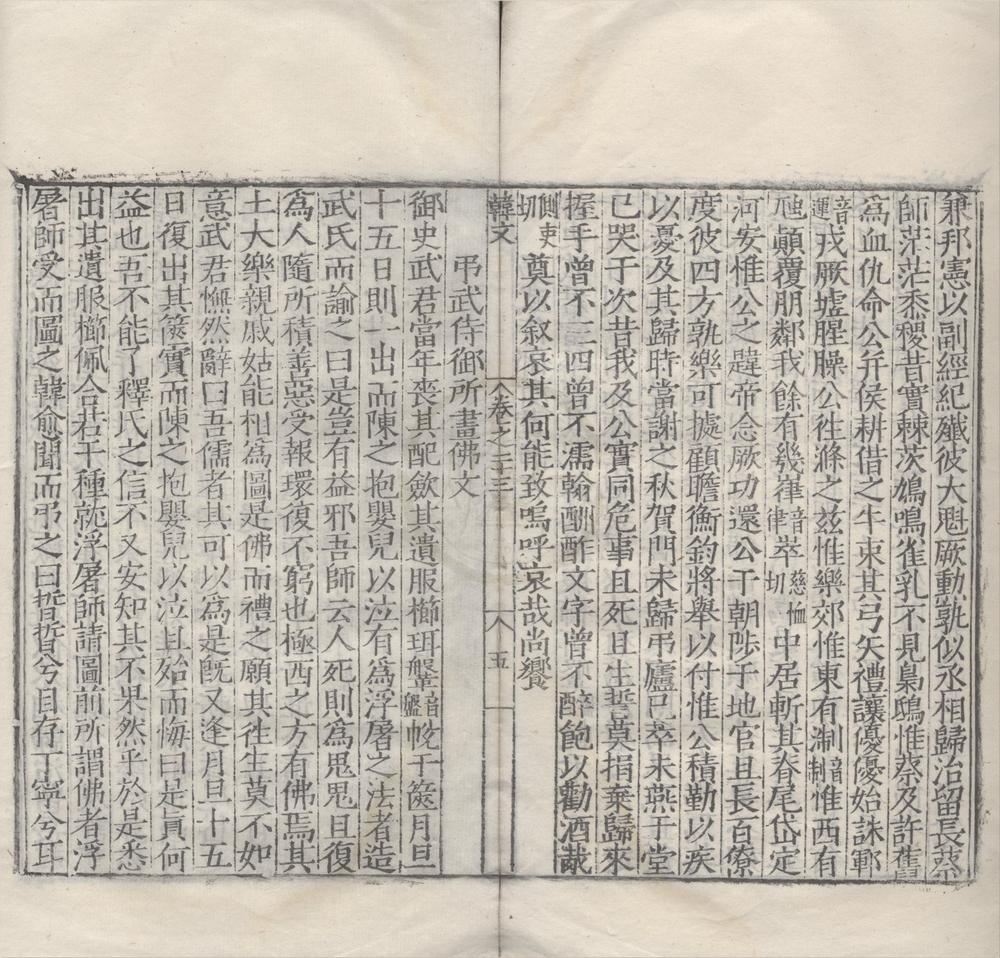 兼邦憲以副經紀殲彼大魁厥勳孰似丞相歸治留長蔡
師茫茫黍稷昔實棘茨鳩鳴雀乳不見梟鴟惟蔡及許舊
爲血仇命公并侯耕借之牛束其弓矢禮讓優優始誅鄆
音運戎厥墟腥臊公往滌之兹惟樂郊惟東有淛音制惟西有
虺顚覆朋鄰我餘有幾崔音律萃慈恤切中居斬其脊尾岱定
河安惟公之韙帝念厥功還公于朝陟于地官且長百僚
度彼四方孰樂可據顧瞻衡鈞將舉以付惟公積勤以疾
以憂及其歸時當謝之秋賀門未歸弔廬已萃未燕于堂
已哭于次昔我及公實同危事且死且生誓莫捐棄歸來
握手曾不三四曾不濡翰酬酢文字曾不醉飽以勸酒胾
側吏切奠以叙哀其何能致嗚呼哀哉尚饗
韓文 卷之二十三 五
弔武侍御所畫佛文
御史武君當年喪其配斂其遺服櫛珥鞶音盤帨于篋月旦
十五日則一出而陳之抱嬰兒以泣有爲浮屠之法者造
武氏而諭之曰是豈有益邪吾師云人死則爲鬼鬼且復
爲人隨所積善惡受報環復不窮也極西之方有佛焉其
土大樂親戚姑能相爲圖是佛而禮之願其往生莫不如
意武君憮然辭曰吾儒者其可以爲是旣又逢月旦十五
日復出其篋實而陳之抱嬰兒以泣且殆而悔曰是眞何
益也吾不能了釋氏之信不又安知其不果然乎於是悉
出其遺服櫛佩合若干種就浮屠師請圖前所謂佛者浮
屠師受而圖之韓愈聞而弔之曰晢晢兮目存丁寧兮耳